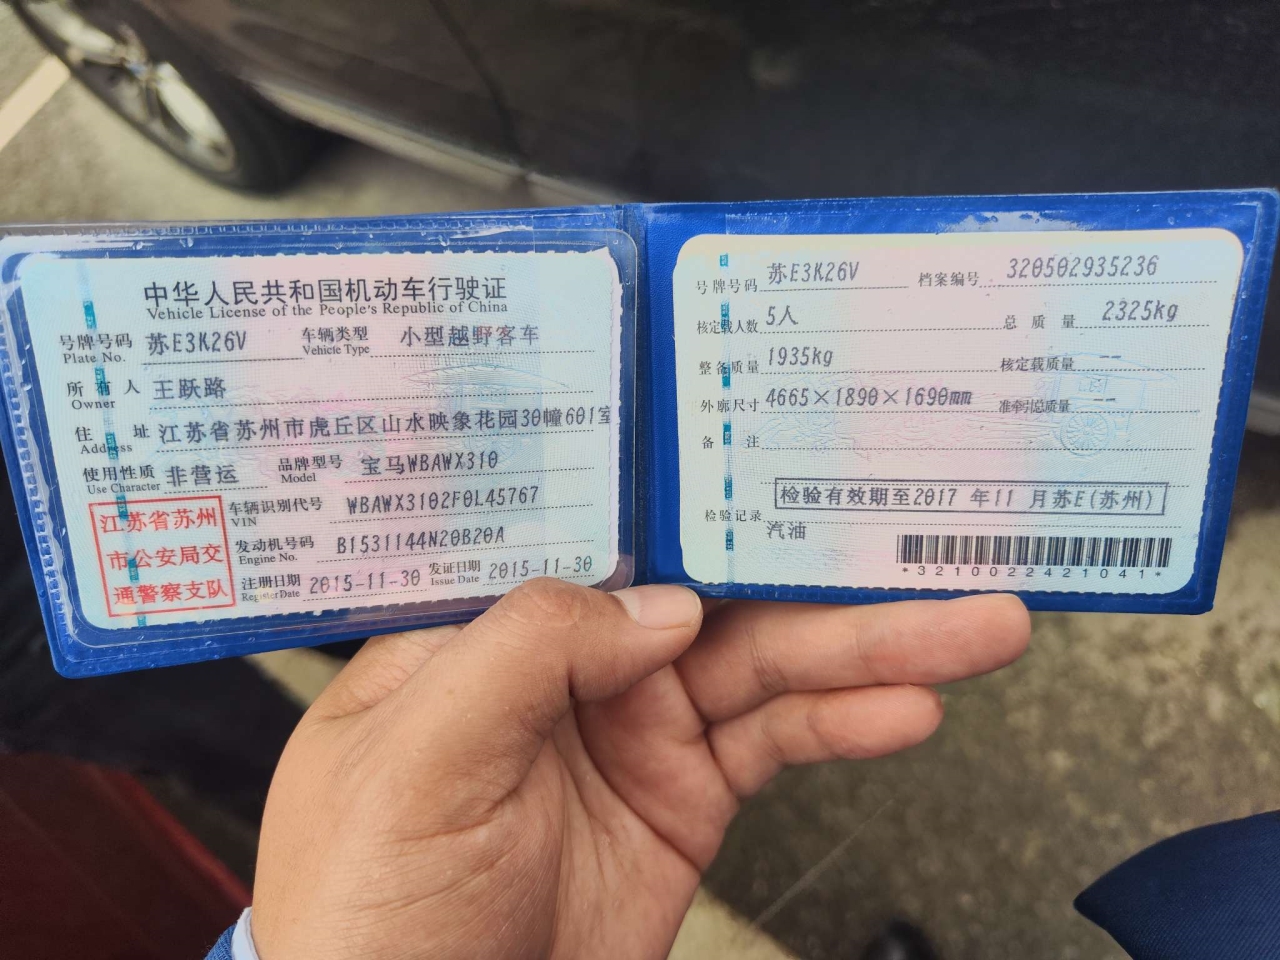 中华人民共和国机动车行驶证
Vehicle License of the People's Republic of China
号牌号码 苏E3K26V 车辆类型 小型越野客车
Plate No. Vehicle Type
所有人 王跃路
Owner
住址 江苏省苏州市虎丘区山水映象花园30幢601室
Address
使用性质 非营运 品牌型号 宝马WBAWX310
Use Character Model
江苏省苏州
市公安局交
通警察支队
车辆识别代号 WBAWX3102F0L45767
VIN
发动机号码 B1531144N20B20A
Engine No.
注册日期 2015-11-30 发证日期 2015-11-30
Register Date Issue Date
号牌号码 苏E3K26V 档案编号 320502935236
核定载人数 5人 总质量 2325kg
整备质量 1935kg 核定载质量 --
外廓尺寸 4665×1890×1690mm 准牵引总质量 --
备注
检验有效期至2017年11月苏E(苏州)
检验记录
汽油
*3210022421041*